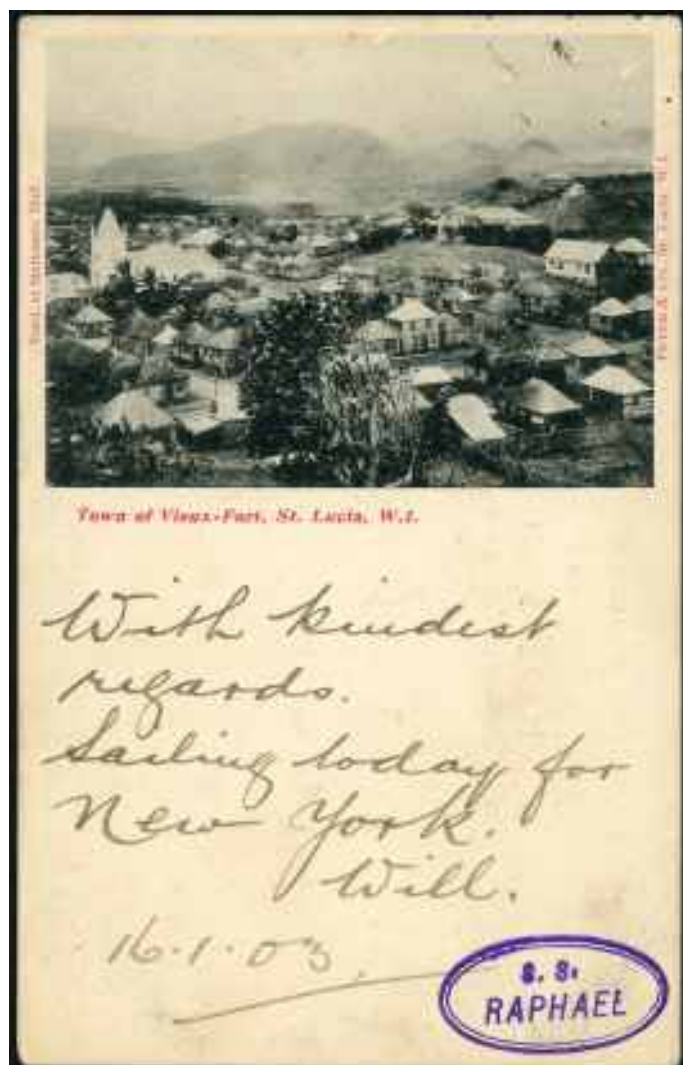 Town of Vieux-Fort, St. Lucia, W.I.
With kindest
regards.
Sailing today for
New York.
Will.
16.1.03.
S. S.
RAPHAEL